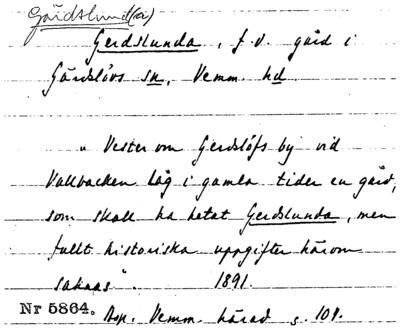 Gärdslund(a)
Gerdslunda, f.v. gård i
Gärdslövs sn, Vemm. hd
" Vester om Gerdslöfs by vid
Vallbacken låg i gamla tider en gård,
som skall ha hetat Gerdslunda, men
fullt historiska uppgifter härom
saknas". 1891.
Nr 5864. Asp. Vemm. härad s. 108.